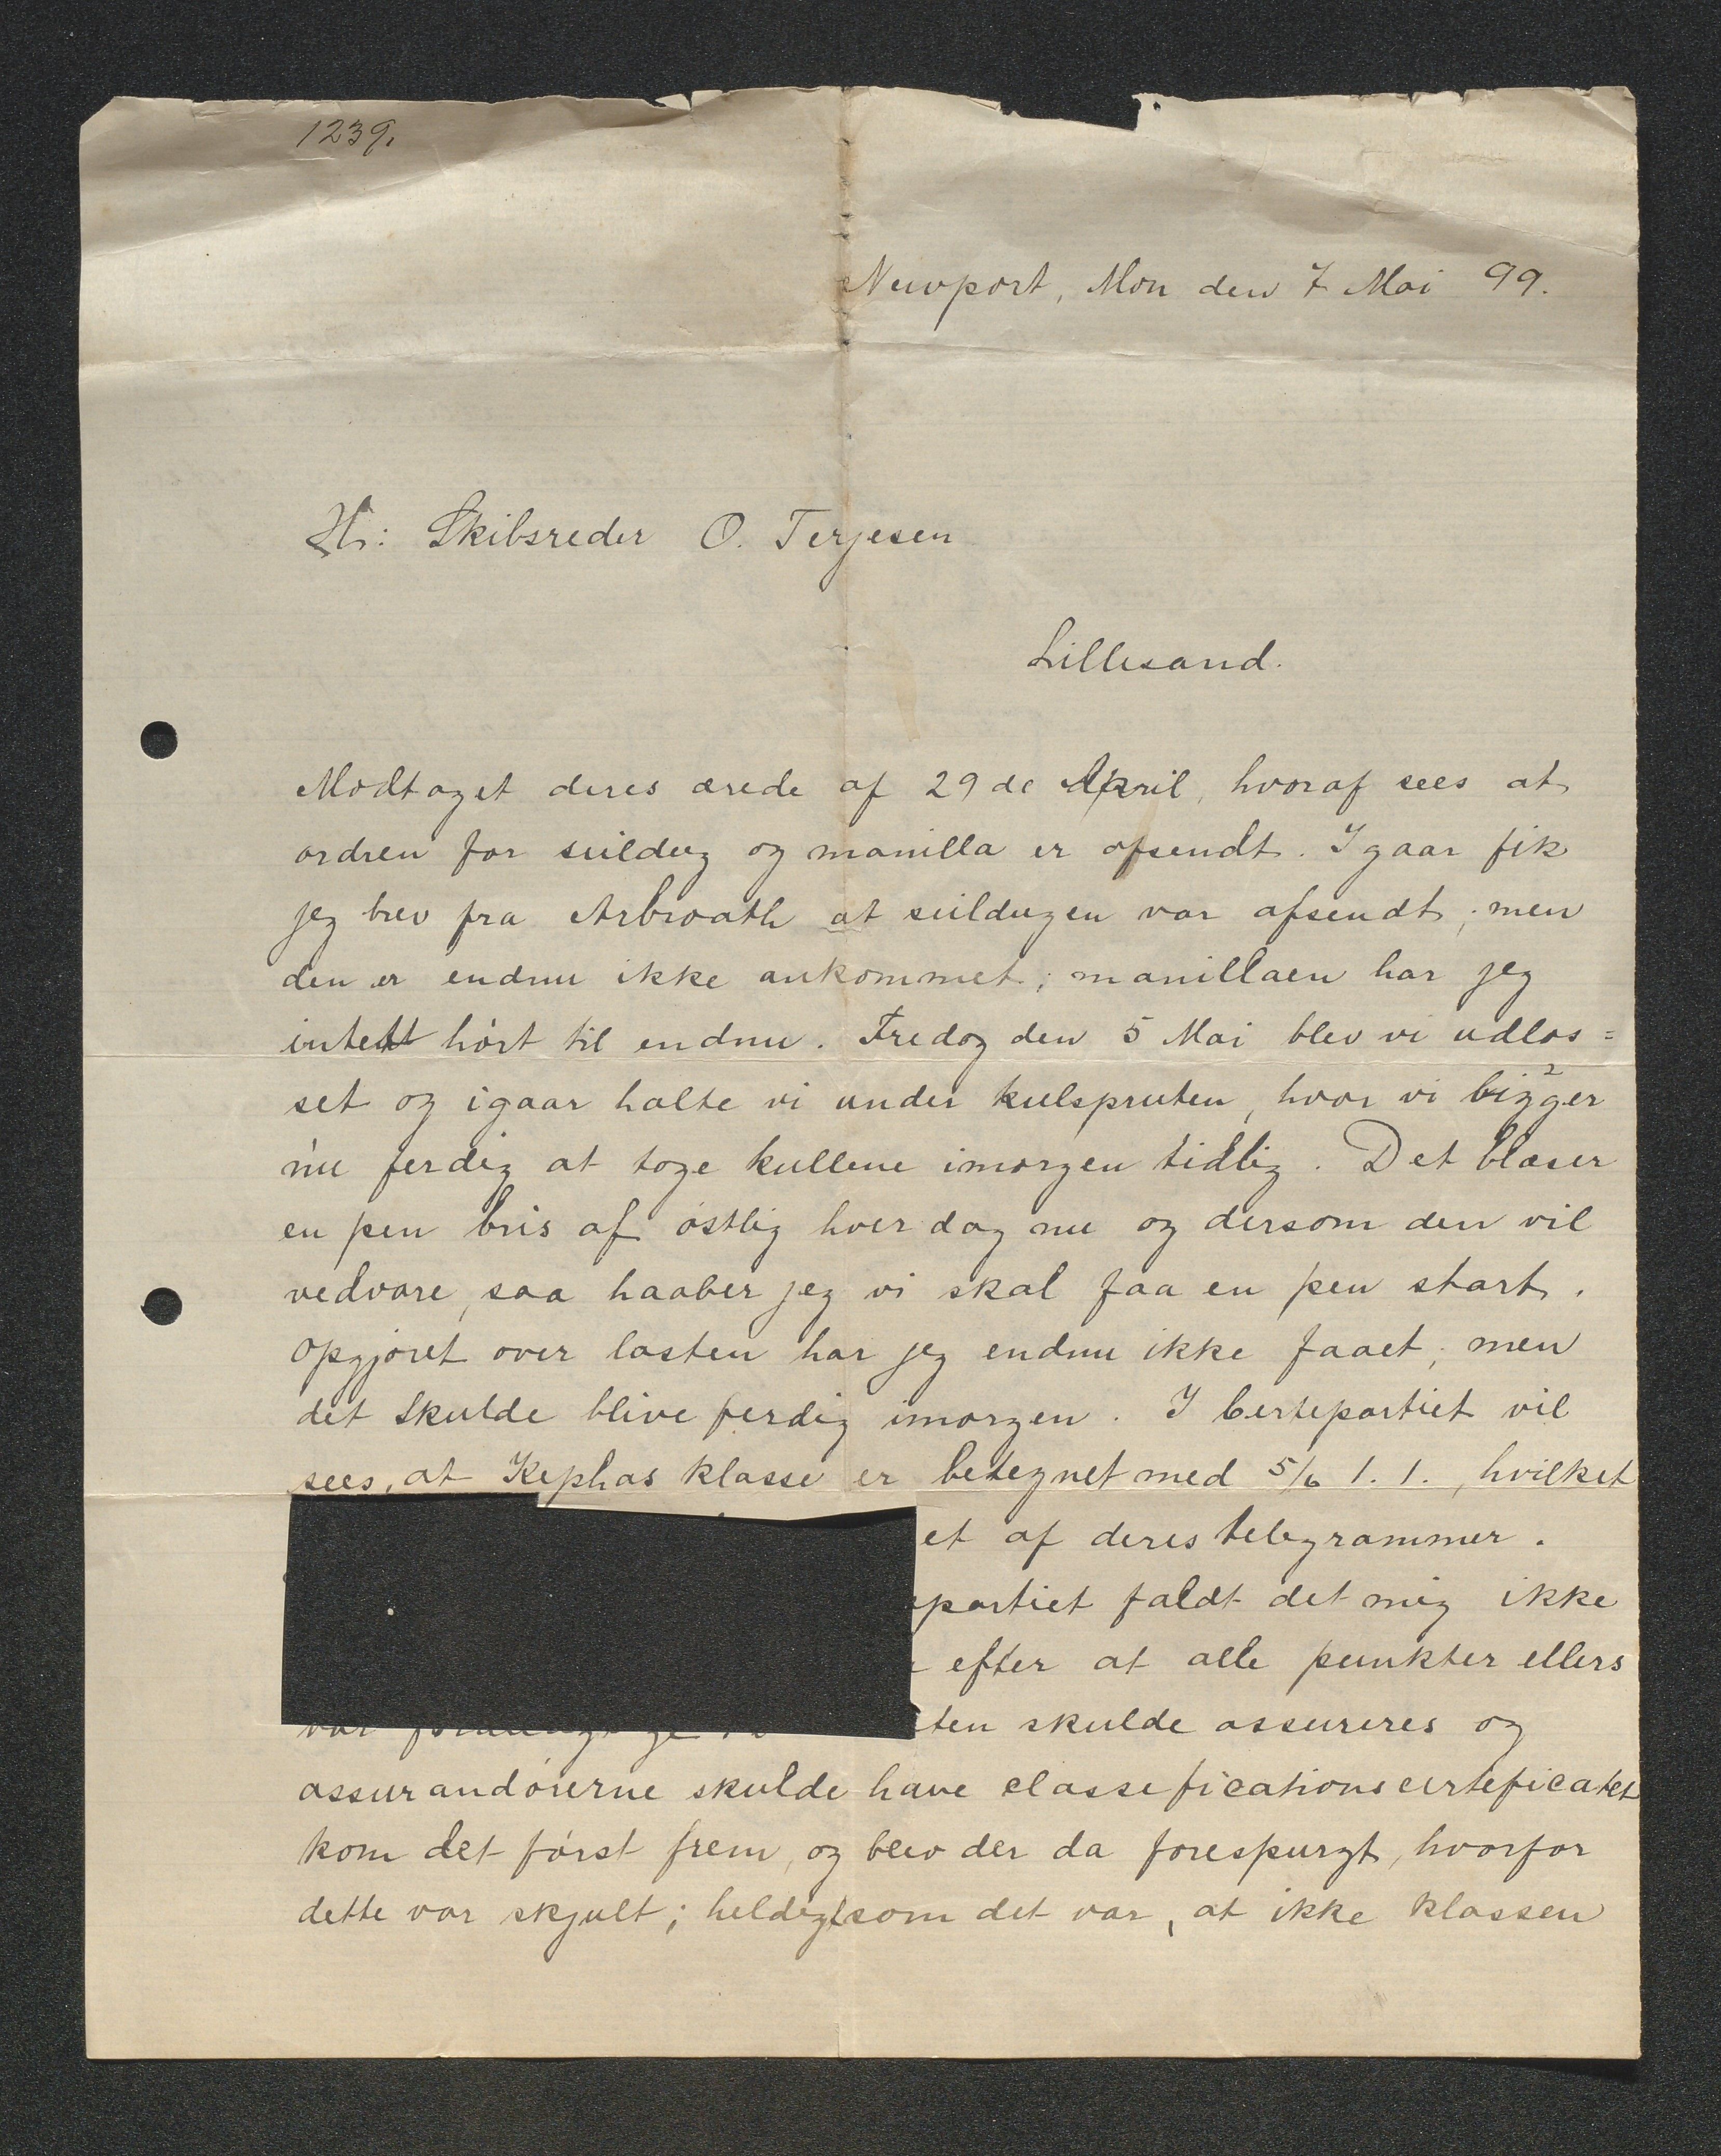 1239.
Newport, Mon den 7 Mai 99.
Hr: Skibsreder O. Terjesen
Lillesand.
Modtaget deres ærede af 29 de April, hvoraf sees at
ordren for seildug og manilla er afsendt. Igaar fik
jeg brev fra Arbroath at seildugen var afsendt; men
den er endnu ikke ankommet; manillaen har jeg
intett hört til endnu. Fredag den 5 Mai blev vi udlos=
set og igaar halte vi under kulspruten, hvor vi ligger
nu ferdig at tage kullene imorgen tidlig. Det blæser
en pen bris af östlig hver dag nu og dersom den vil
vedvare, saa haaber jeg vi skal faa en pen start.
Opgjöret over lasten har jeg endnu ikke faaet; men
det skulde blive ferdig imorgen. I Certepartiet vil
sees, at Kephas klasse er betegnet med 5/6 1. 1., hvilket
et af deres telegrammer.
partiet faldt det mig ikke
efter at alle punkter ellers
var ten skulde assureres og
assurandörerne skulde have classeficationscerteficatet
kom det först frem, og blev der da forespurgt, hvorfor
dette var skjult; heldig som det var, at ikke klassen